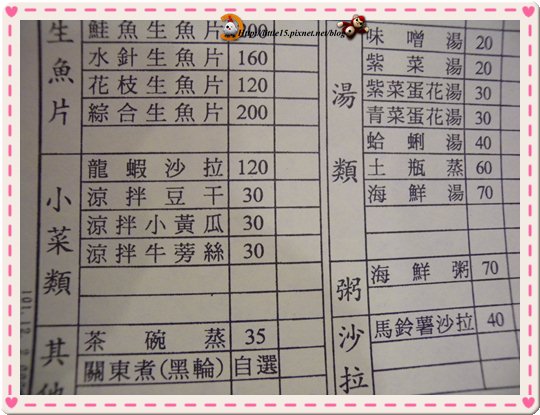 http://little15.pixnet.net/blog
生魚片
鮭魚生魚片 200
水針生魚片 160
花枝生魚片 120
綜合生魚片 200
小菜類
龍蝦沙拉 120
涼拌豆干 30
涼拌小黃瓜 30
涼拌牛蒡絲 30
其他
茶碗蒸 35
關東煮(黑輪) 自選
湯類
味噌湯 20
紫菜湯 20
紫菜蛋花湯 30
青菜蛋花湯 30
蛤蜊湯 40
土瓶蒸 60
海鮮湯 70
粥
海鮮粥 70
沙拉
馬鈴薯沙拉 40